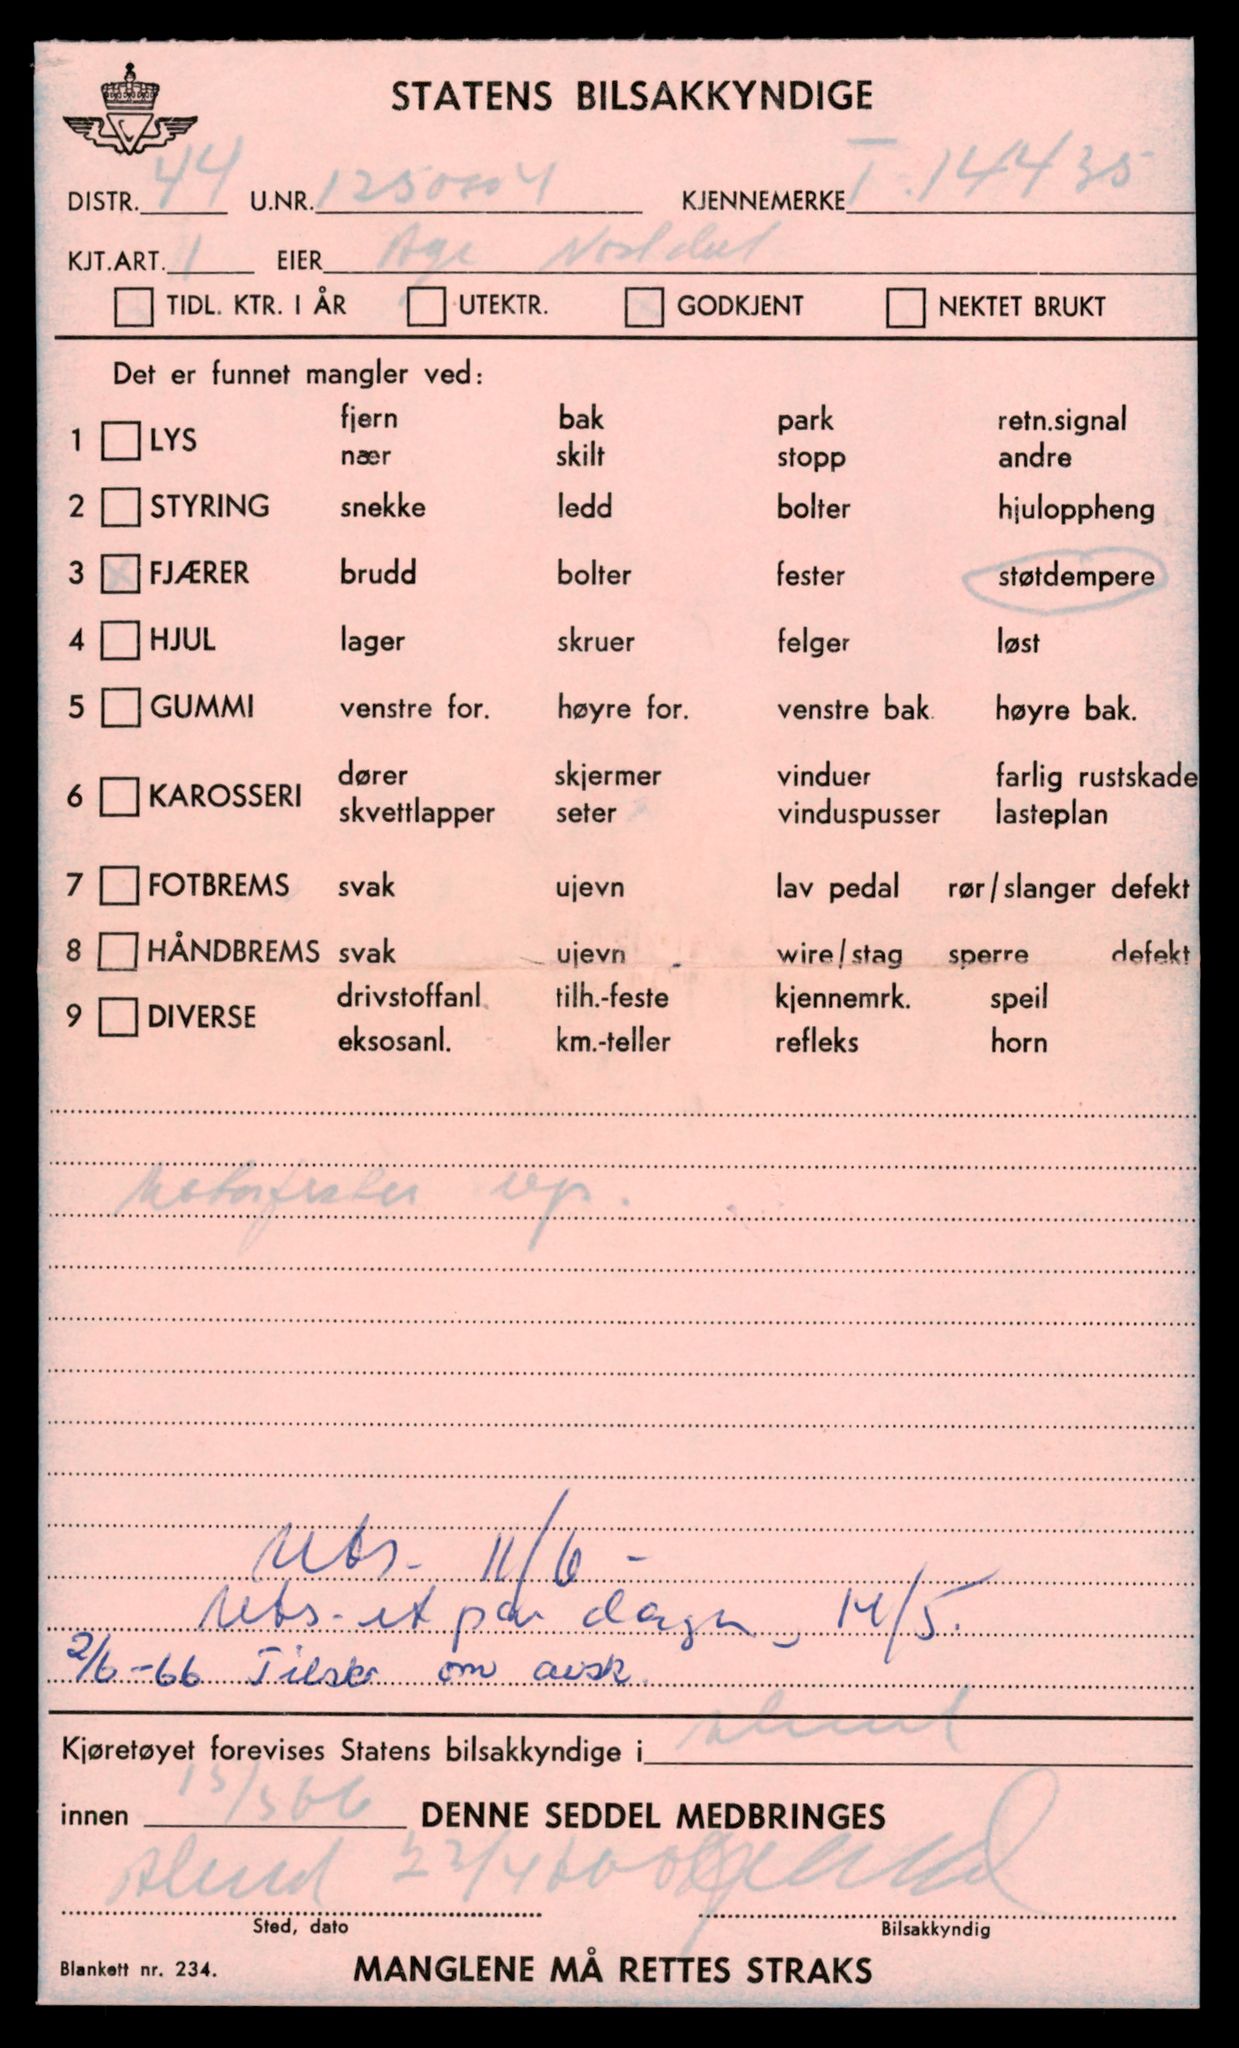 STATENS BILSAKKYNDIGE
DISTR. 44 U.NR. KJENNEMERKE T-14435
KJT.ART. 1 EIER Åge
TIDL. KTR. I ÅR UTEKTR. GODKJENT NEKTET BRUKT
Det er funnet mangler ved:
1 LYS fjern bak park retn.signal
nær skilt stopp andre
2 STYRING snekke ledd bolter hjuloppheng
3 X FJÆRER brudd bolter fester støtdempere
4 HJUL lager skruer felger løst
5 GUMMI venstre for. høyre for. venstre bak. høyre bak.
6 KAROSSERI dører skjermer vinduer farlig rustskade
skvettlapper seter vinduspusser lasteplan
7 FOTBREMS svak ujevn lav pedal rør/slanger defekt
8 HÅNDBREMS svak ujevn wire/stag sperre defekt
9 DIVERSE drivstoffanl. tilh.-feste kjennemrk. speil
eksosanl. km.-teller refleks horn
rep.
Uts- 11/6 -
Uts- et par dager, 14/5.
2/6-66 Tilskr om avsk.
Kjøretøyet forevises Statens bilsakkyndige i
innen 15/5 66 DENNE SEDDEL MEDBRINGES
Sted, dato Bilsakkyndig
Blankett nr. 234. MANGLENE MÅ RETTES STRAKS